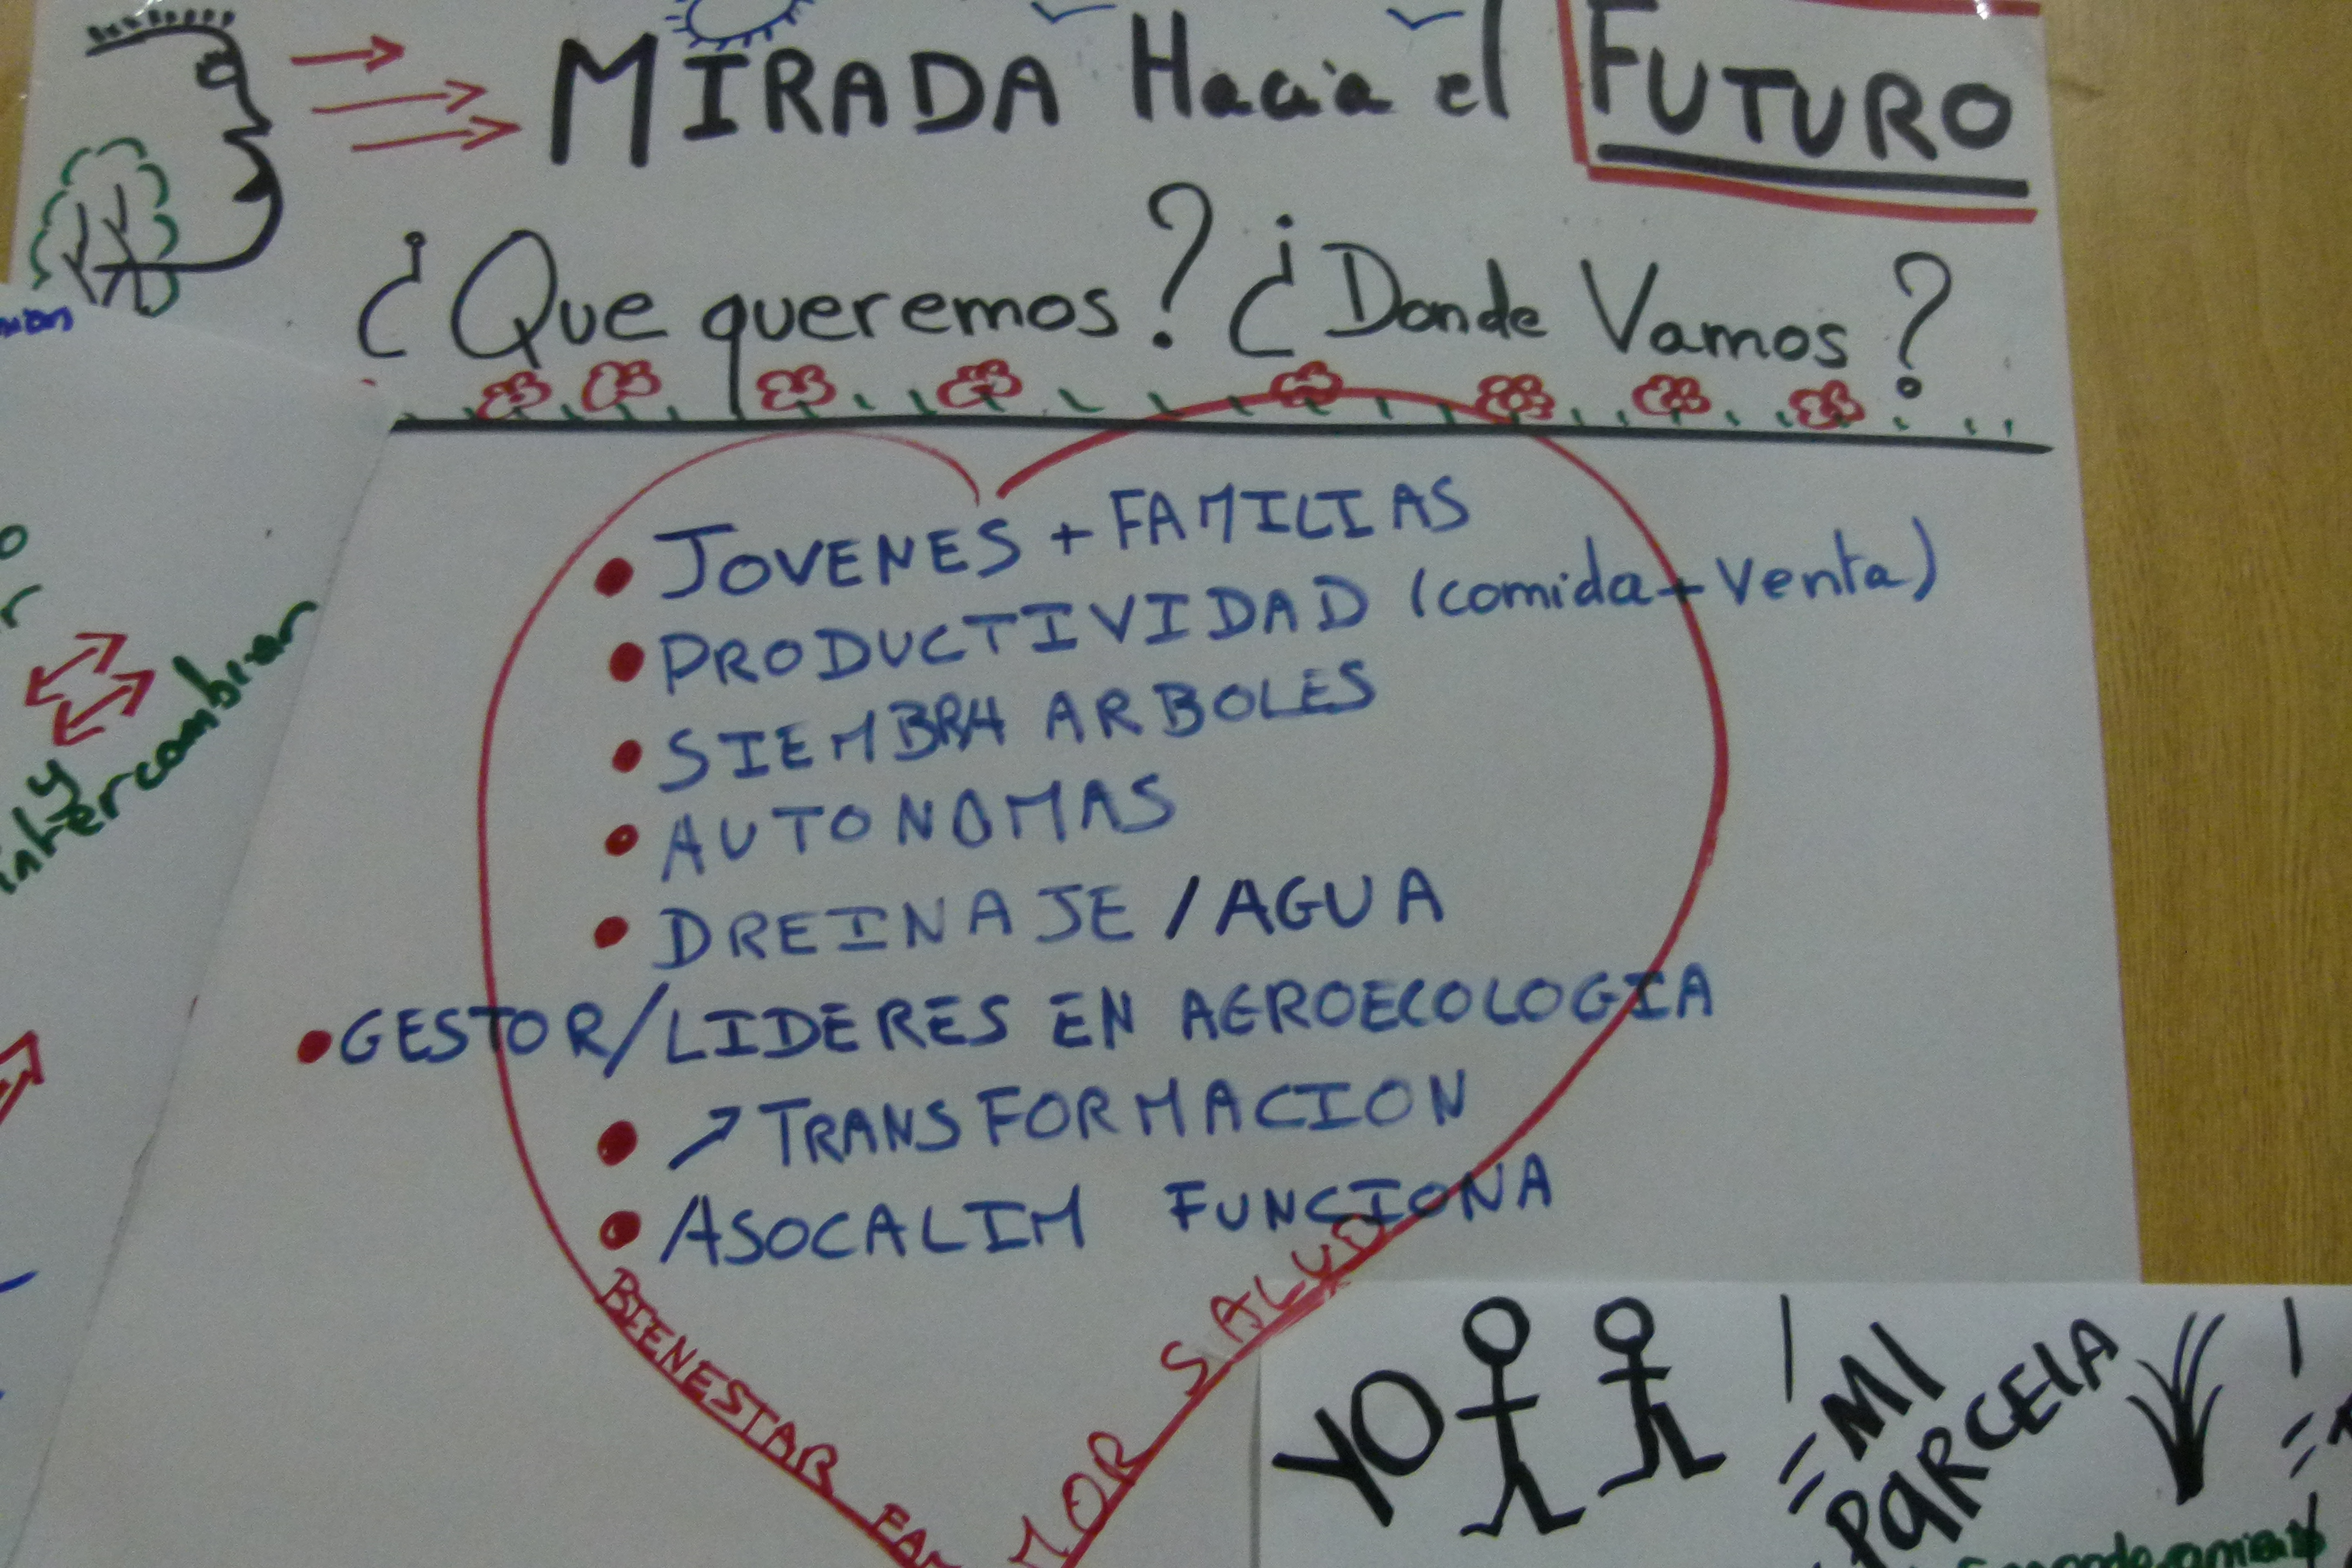 MIRADA Hacia el FUTURO
¿Que queremos? ¿Donde Vamos?
• JOVENES + FAMILIAS
• PRODUCTIVIDAD (comida + venta)
• SIEMBRA ARBOLES
• AUTONOMAS
• DREINAJE / AGUA
• GESTOR/LIDERES EN AGROECOLOGIA
• ↗ TRANSFORMACION
• ASOCALIM FUNCIONA
BIENESTAR
SALUD
y
intercambiar
YO
= MI
PARCELA